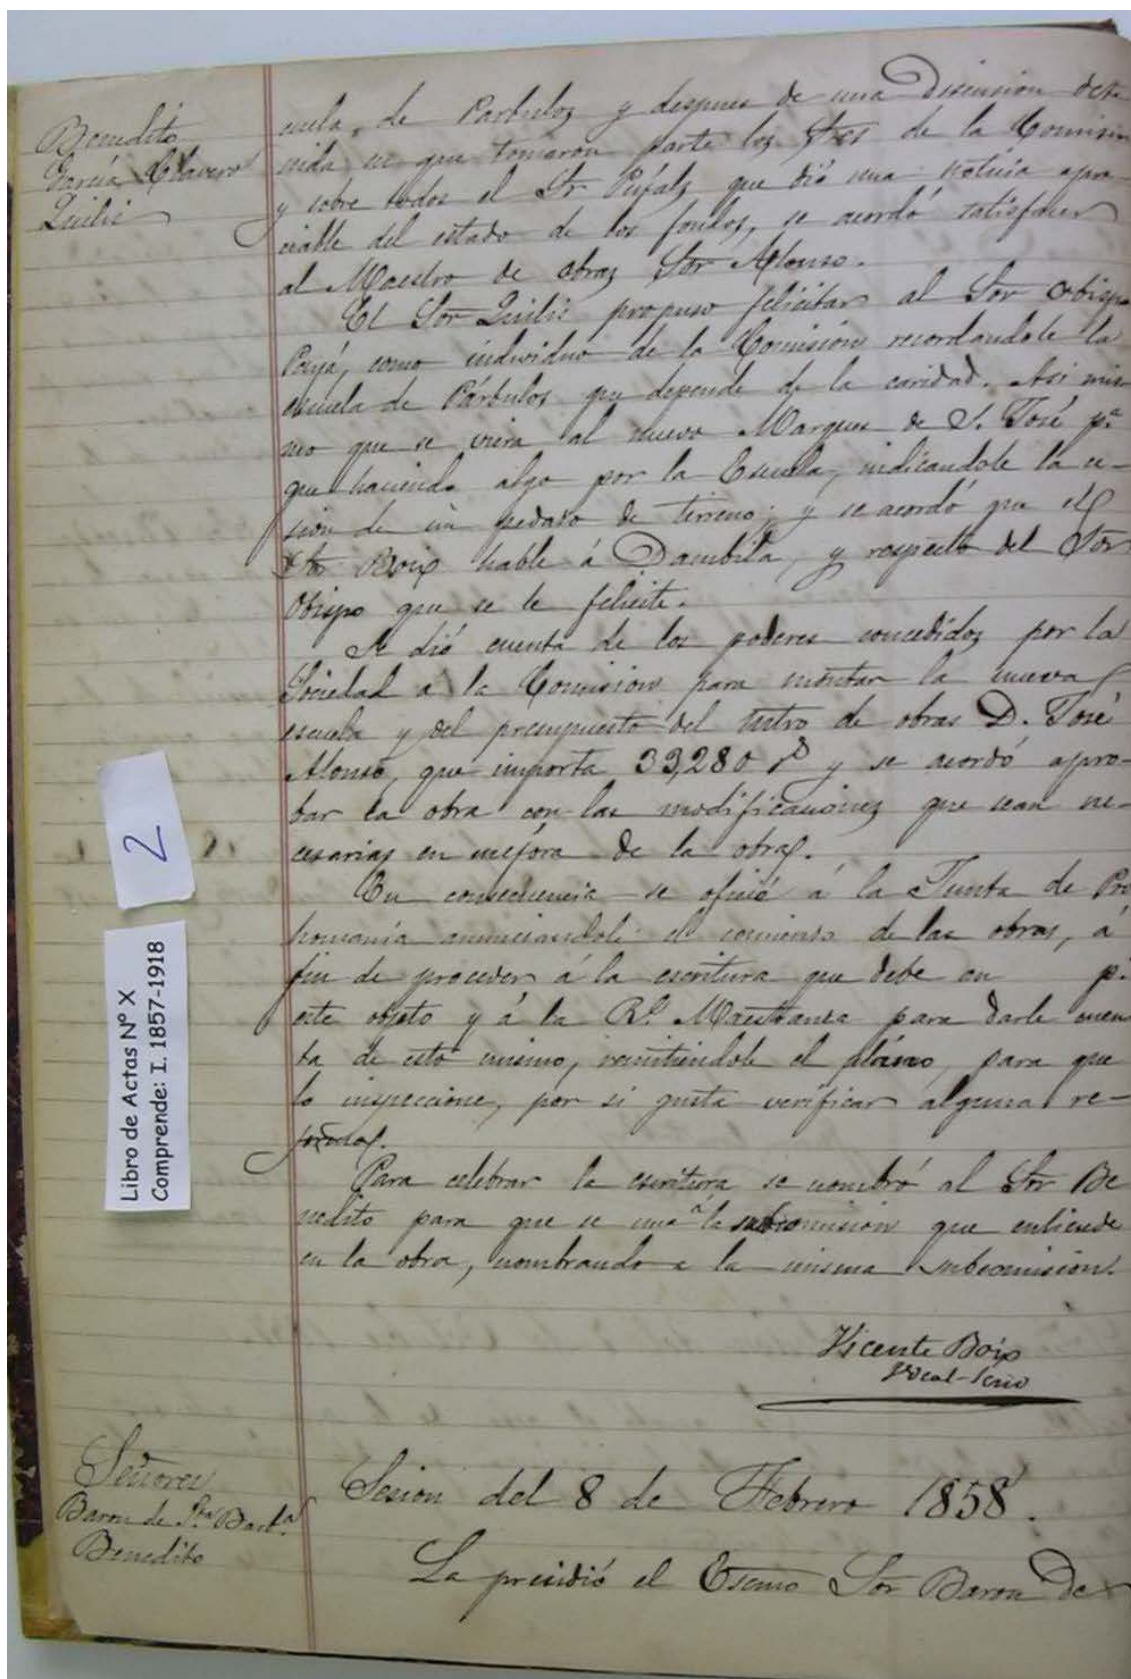 Benedito
García Clavero
Quilis
cuela, de Parbulos y despues de una Discusion dete
nida en que tomaron parte los Sres de la Comision
y sobre todos el Sr Pujals que dió una noticia apre
ciable del estado de los fondos, se acordó satisfacer
al Maestro de obras Sor Alonso.
El Sor Quilis propuso felicitar al Sor Obispo
Payá, como individuo de la Comisión recordandole la
escuela de Párbulos que depende de la caridad. Asi mis
mo que se viera al nuevo Marques de S. José pª
que haciendo algo por la Escuela, indicandole la ce-
sion de un pedazo de terreno; y se acordó que el
Sr Boix hable á Dambila, y respecto del Sor
Obispo que se le felicite.
Se dió cuenta de los poderes concedidos por la
Sociedad a la Comision para montar la nueva
escuela y del presupuesto del mtro de obras D. José
Alonso, que importa 39,280 rs y se acordó apro-
bar la obra con las modificaciones que sean ne-
cesarias en mejora de la obra.
En consecuencia se ofició á la Junta de Pro
hομanía anunciandole el comienzo de las obras, á
fin de proceder á la escritura que debe en p.ª
este objeto y á la Rl. Maestranza para darle cuen
ta de esto mismo, remitiendole el plano, para que
lo inspeccione, por si gusta verificar alguna re-
forma.
Para celebrar la escritura se nombró al Sor Be
nedito para que se una á la subcomision que entiende
en la obra, nombrando a la misma subcomision.
Vicente Boix
Vocal-Srio
Libro de Actas Nº X
Comprende: I. 1857-1918
2
Señores
Baron de Sta Barbª
Benedito
Sesion del 8 de Febrero 1858.
La presidió el Escmo Sor Baron De